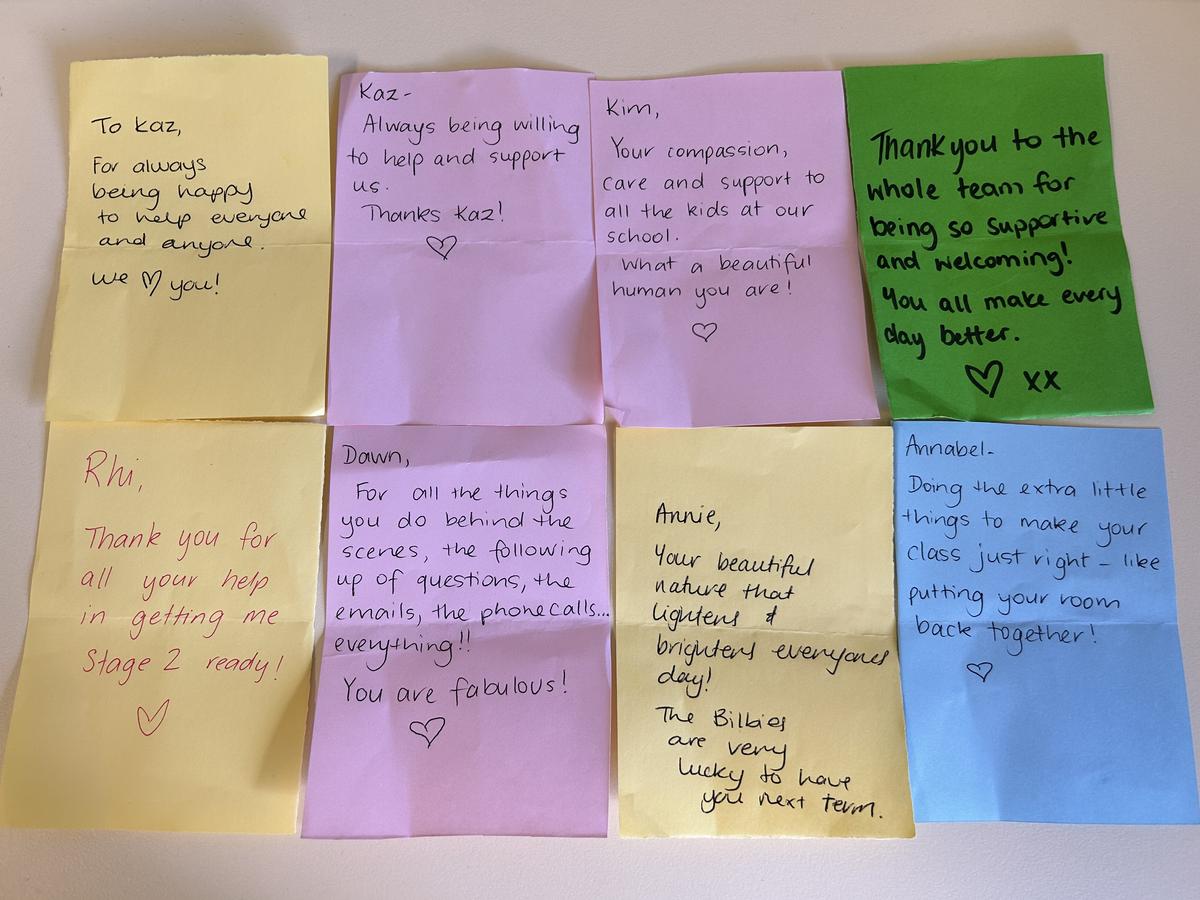 To Kaz,
For always
being happy
to help everyone
and anyone.
We ♡ you!
Kaz-
Always being willing
to help and support
us.
Thanks Kaz!
♡
Kim,
Your compassion,
care and support to
all the kids at our
school.
What a beautiful
human you are!
♡
Thank you to the
whole team for
being so supportive
and welcoming!
You all make every
day better.
♡ xx
Rhi,
Thank you for
all your help
in getting me
Stage 2 ready!
♡
Dawn,
For all the things
you do behind the
scenes, the following
up of questions, the
emails, the phonecalls...
everything!!
You are fabulous!
♡
Annie,
Your beautiful
nature that
lightens &
brightens everyones
day!
The Bilbies
are very
lucky to have
you next term.
Annabel-
Doing the extra little
things to make your
class just right - like
putting your room
back together!
♡